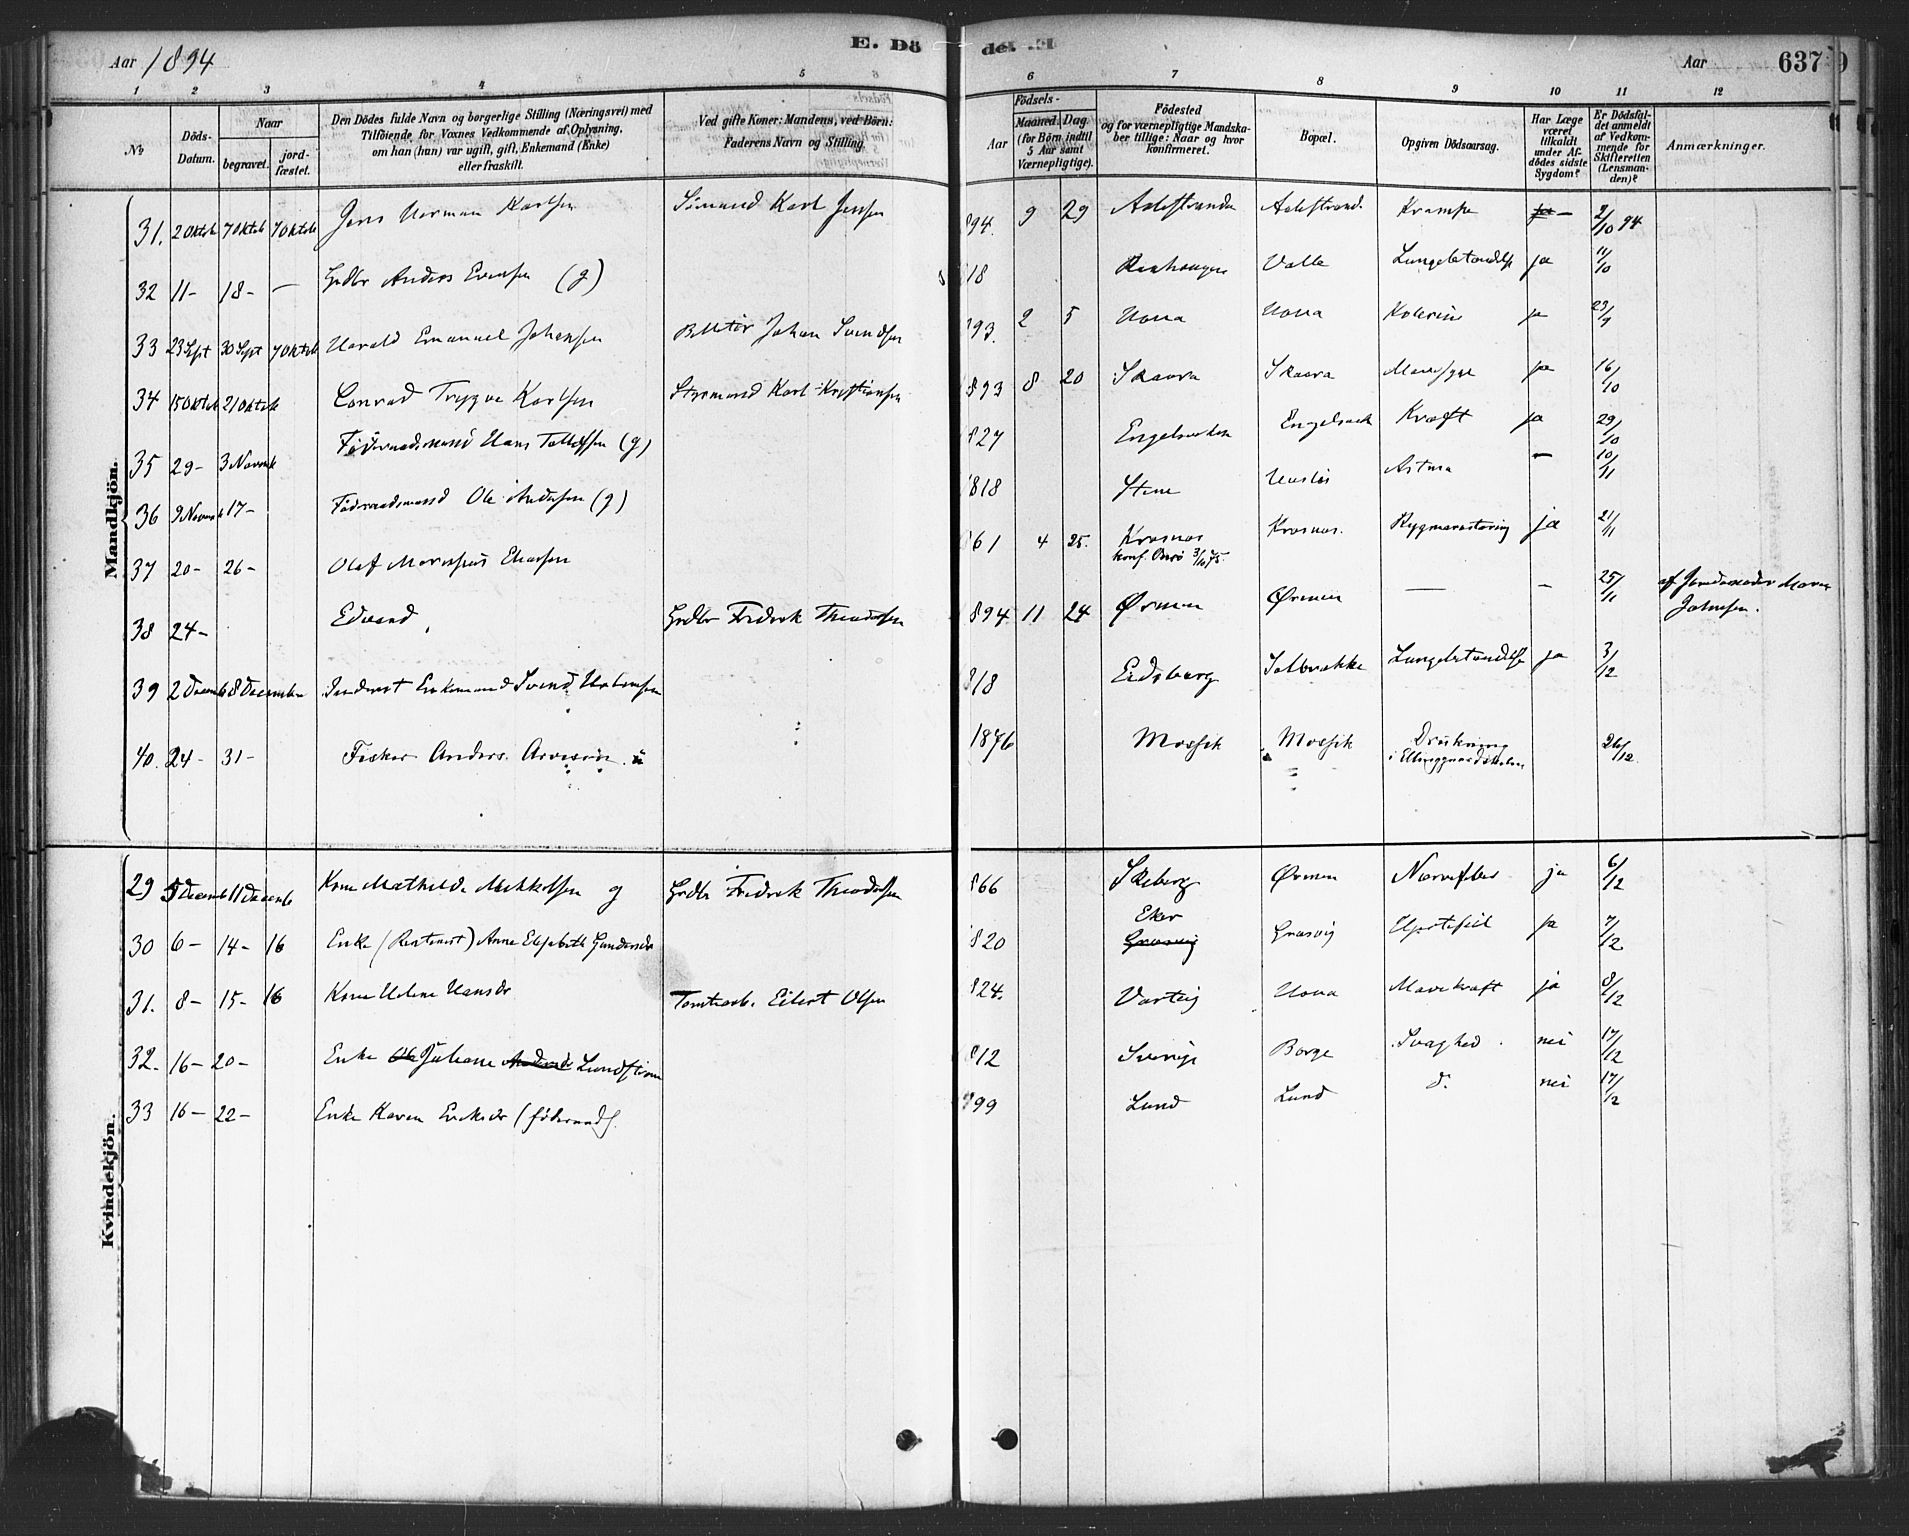 Aar 1894
E. Dö
de. El
Aar
637
1 2 3 4 5 6 7 8 9 10 11 12
№
Döds-Datum.
Naar
begravet.
jord-fæstet.
Den Dödes fulde Navn og borgerlige Stilling (Næringsvei) med
Tilföiende for Voxnes Vedkommende af Oplysning,
om han (hun) var ugift, gift, Enkemand (Enke)
eller fraskilt.
Ved gifte Koner: Mandens, ved Börn:
Faderens Navn og Stilling.
Födsels-
Aar
Maaned. Dag
(for Börn indtil
5 Aar samt
Værnepligtige).
Födested
og for værnepligtige Mandska-
ber tillige: Naar og hvor
konfirmeret.
Bopæl.
Opgiven Dödsaarsag.
Har Læge
været
tilkaldt
under Af-
dödes sidste
Sygdom?
Er Dödsfal-
det anmeldt
af Vedkom-
mende for
Skifteretten
(Lensman-
den)?
Anmærkninger.
Mandkjön.
31. 2 Oktob 7 Oktob 7 Oktob Jens Herman Karlsen Sömand Karl Jensen 894. 9 29 Aalestranda Aalestrand. Krampe 2/10 94
32 11- 18- — Grdbr Anders Evensen (g) 818 Valle Lungebetændelse ja 11/10
33 23 Sept 30 Sept 7 Oktob Harald Emanuel Johansen Johan Svendsen 93. 2 5 Hona Hona Kolerine ja 23/9
34 15 Oktob 21 Oktob Conrad Trygve Karlsen Styrmand Karl Kristiansen 893 8 20 Skaara Skaara Mavesyge ja 16/10
35 29- 3 Novemb Föderaadsmand Hans Tollefsen (g) 827 Kræft ja 29/10
36 9 Novemb 17- Föderaadsmand Ole Andersen (g) 818 Stene Astma — 10/11
37 20- 26- Olaf Olsen 61 4 25. Krosnes Krosnes. Rygmarvstæring ja 21/11
konf. Onsö 3/10 75.
38 24- Edvard Grdbr Fredrik Theodorsen 894 11 24 Ørmen Ørmen — — 25/11 af Jordemoder Maren
Johnsen.
39 2 Decemb 8 December Inderst Enkemand Svend 818 Eidsberg Solbrække Lungebetændelse ja 3/12
40. 24- 31- Fisker Anders u 1876 Mossik Mossik Drukning 26/12
Kvindekjön.
29 5 Decemb 11 Decemb Kone Mathilde Mikkelsen g Grdbr Fredrik Theodorsen 866 Skeberg Ørmen Nervefeber ja 6/12
30 6- 14- 16 Enke (Rentenist) Anne Elisabeth Gundersdr 820 Eker Græsvig Græsvig Hjertefeil ja 7/12
31. 8- 15- 16 Kone Helene Hansdr Tomtearb. Eilert Olsen 824. Varteig Hona Mavekræft ja 8/12
32. 16- 20- Enke Juliane Lundström 812 Sverige Borge Svaghed. nei 17/12
33 16- 22- Enke Karen Eriksdr (föderaad). 99 Lund Lund d. nei 17/12